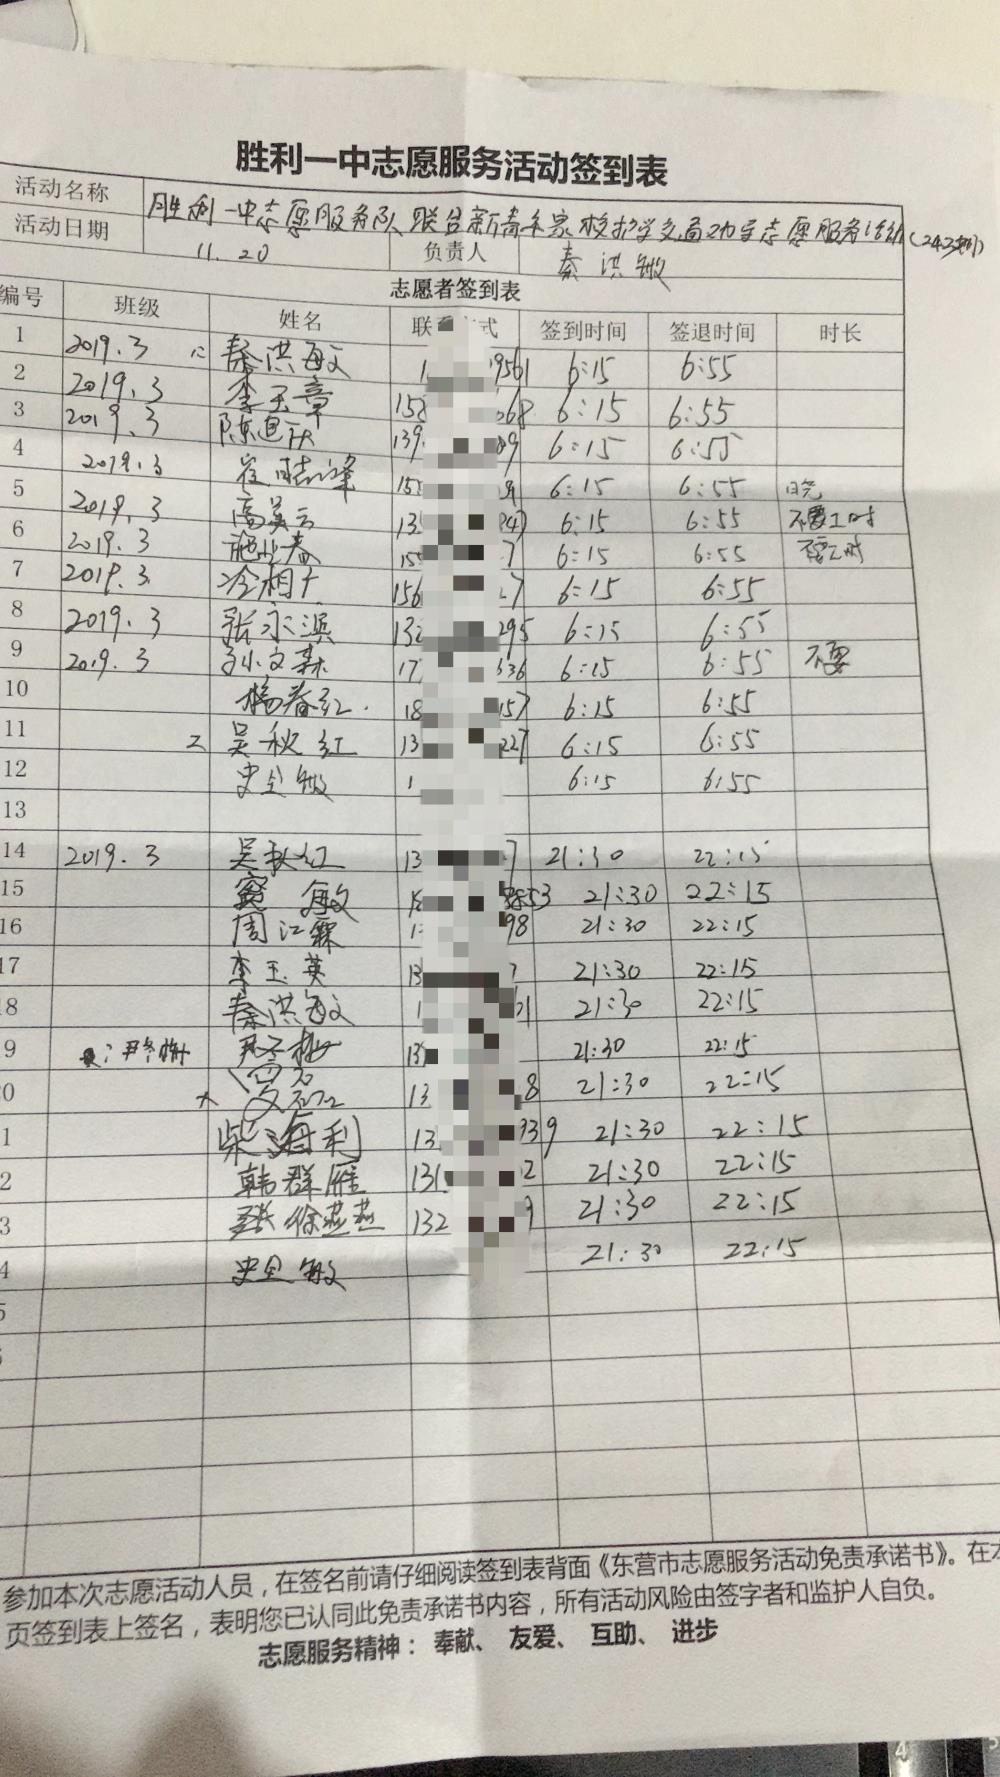 胜利一中志愿服务活动签到表
活动名称 胜利一中志愿服务队联合新青年家校护学交通劝导志愿服务活动(243期)
活动日期 11.20 负责人 秦洪敏
志愿者签到表
编号 班级 姓名 联 式 签到时间 签退时间 时长
1 2019.3 秦洪敏 1 19561 6:15 6:55
2 2019.3 李玉章 158 668 6:15 6:55
3 2019.3 139 09 6:15 6:55
4 2019.3 崔 峰 155 6:15 6:55
5 2019.3 高英云 13 947 6:15 6:55 不要工时
6 2019.3 施 春 155 7 6:15 6:55 不要工时
7 2019.3 冷相 156 27 6:15 6:55
8 2019.3 张永滨 132 295 6:15 6:55
9 2019.3 孙文森 17 636 6:15 6:55 不要
10 杨春红 18 157 6:15 6:55
11 吴秋红 13 227 6:15 6:55
12 史全敏 1 6:15 6:55
13
14 2019.3 吴秋红 13 7 21:30 22:15
15 窦敏 3553 21:30 22:15
16 周江霖 1 98 21:30 22:15
17 李玉英 13 21:30 22:15
18 秦洪敏 1 61 21:30 22:15
9 尹冬梅 13 21:30 22:15
0 13 8 21:30 22:15
1 柴海利 13 939 21:30 22:15
2 韩群雁 131 2 21:30 22:15
3 徐燕燕 132 9 21:30 22:15
4 史全敏 21:30 22:15
5
参加本次志愿活动人员，在签名前请仔细阅读签到表背面《东营市志愿服务活动免责承诺书》。在本
页签到表上签名，表明您已认同此免责承诺书内容，所有活动风险由签字者和监护人自负。
志愿服务精神：奉献、友爱、互助、进步